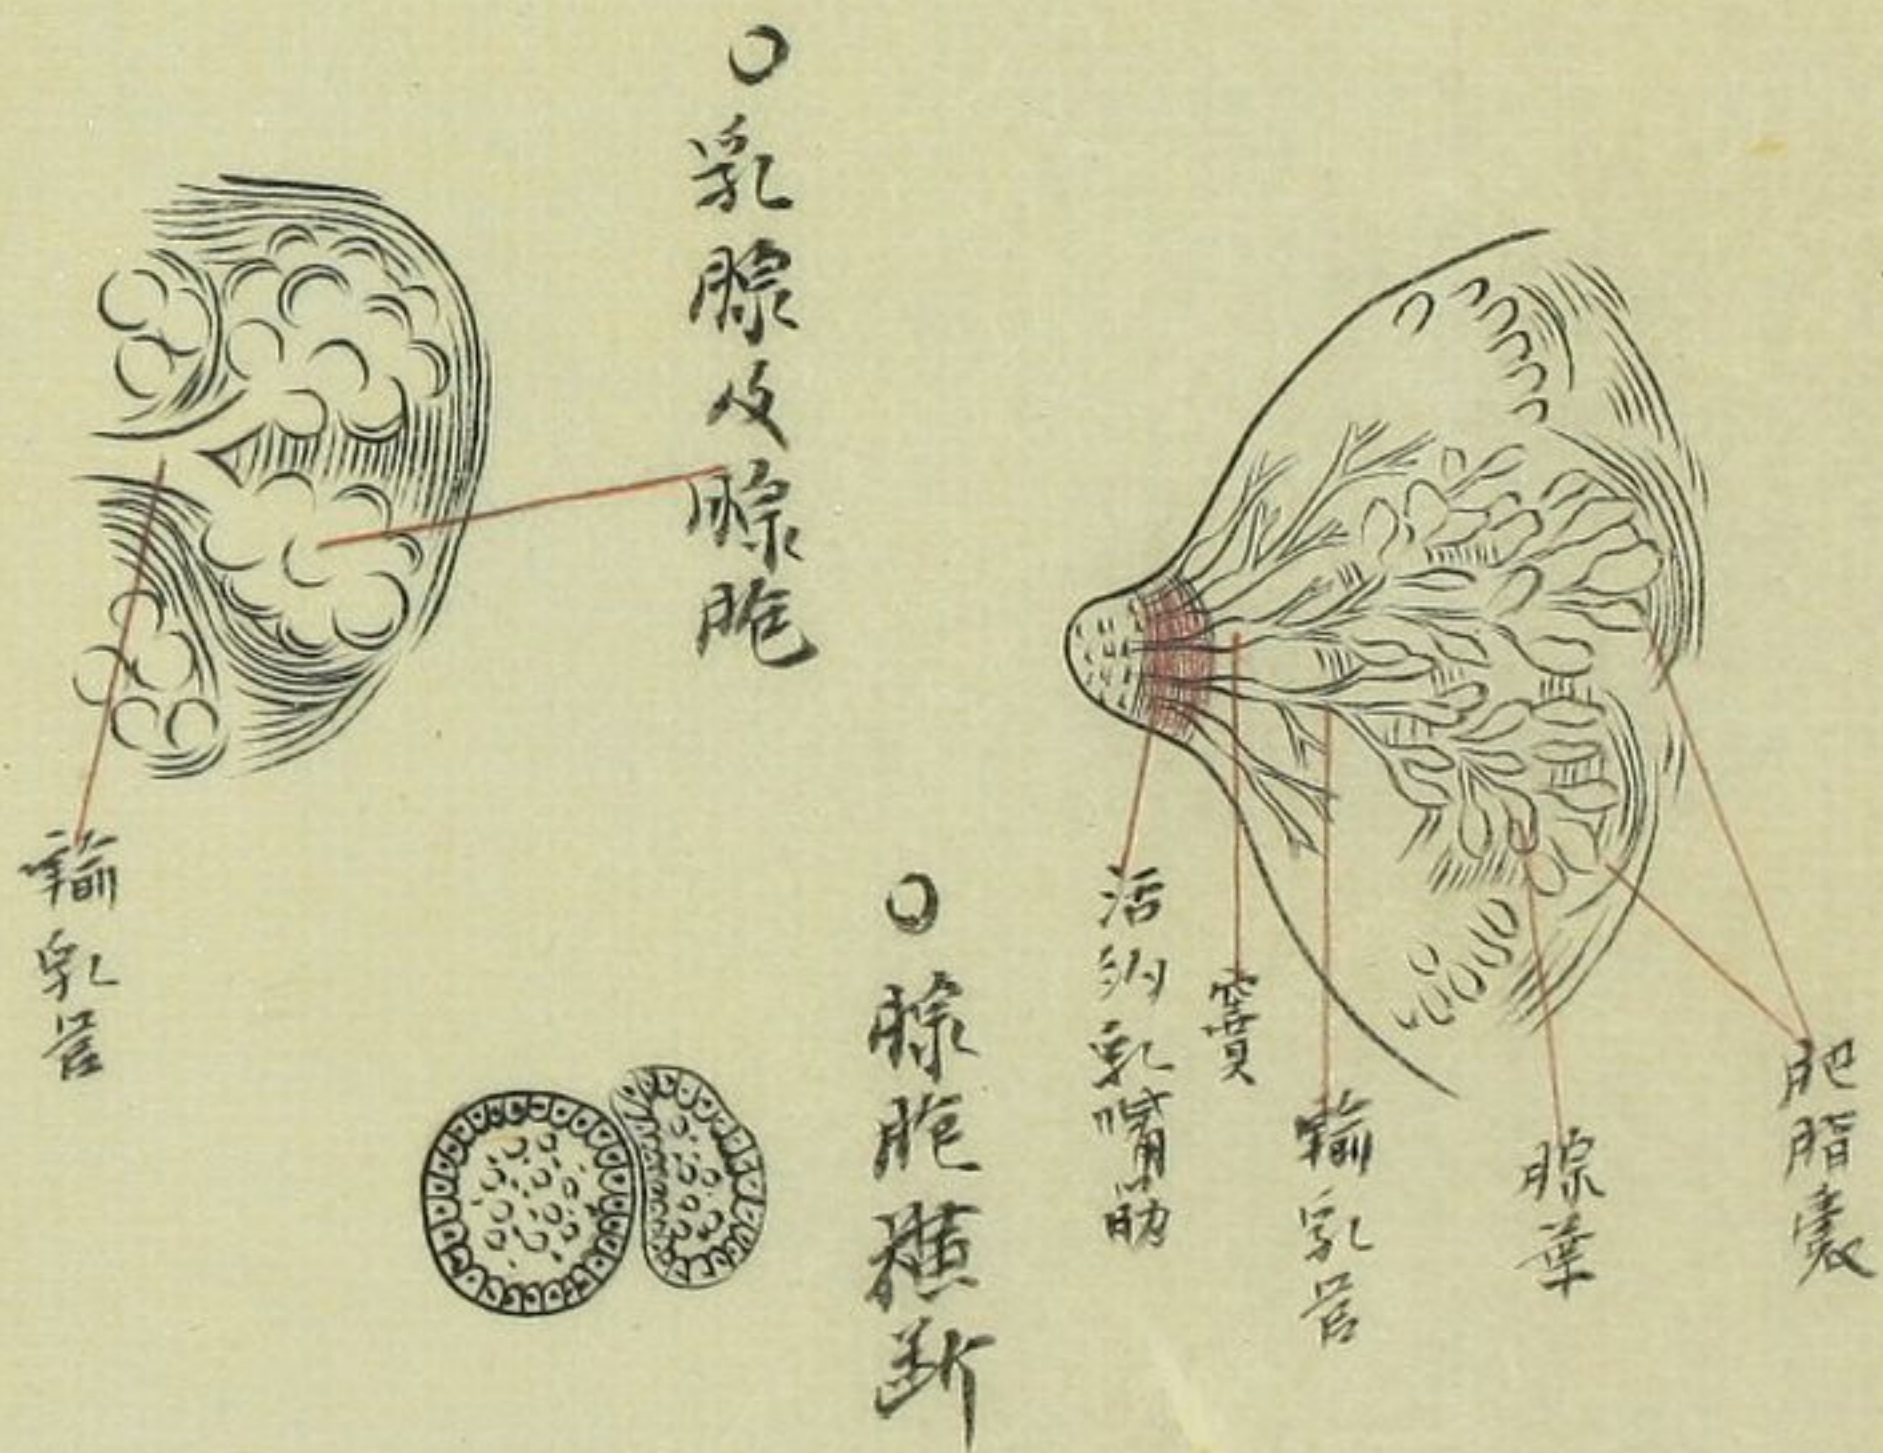 肥脂嚢
腺葉
輸乳管
竇
活納乳嘴筋
○乳腺及腺胞
○腺胞横断
輸乳管